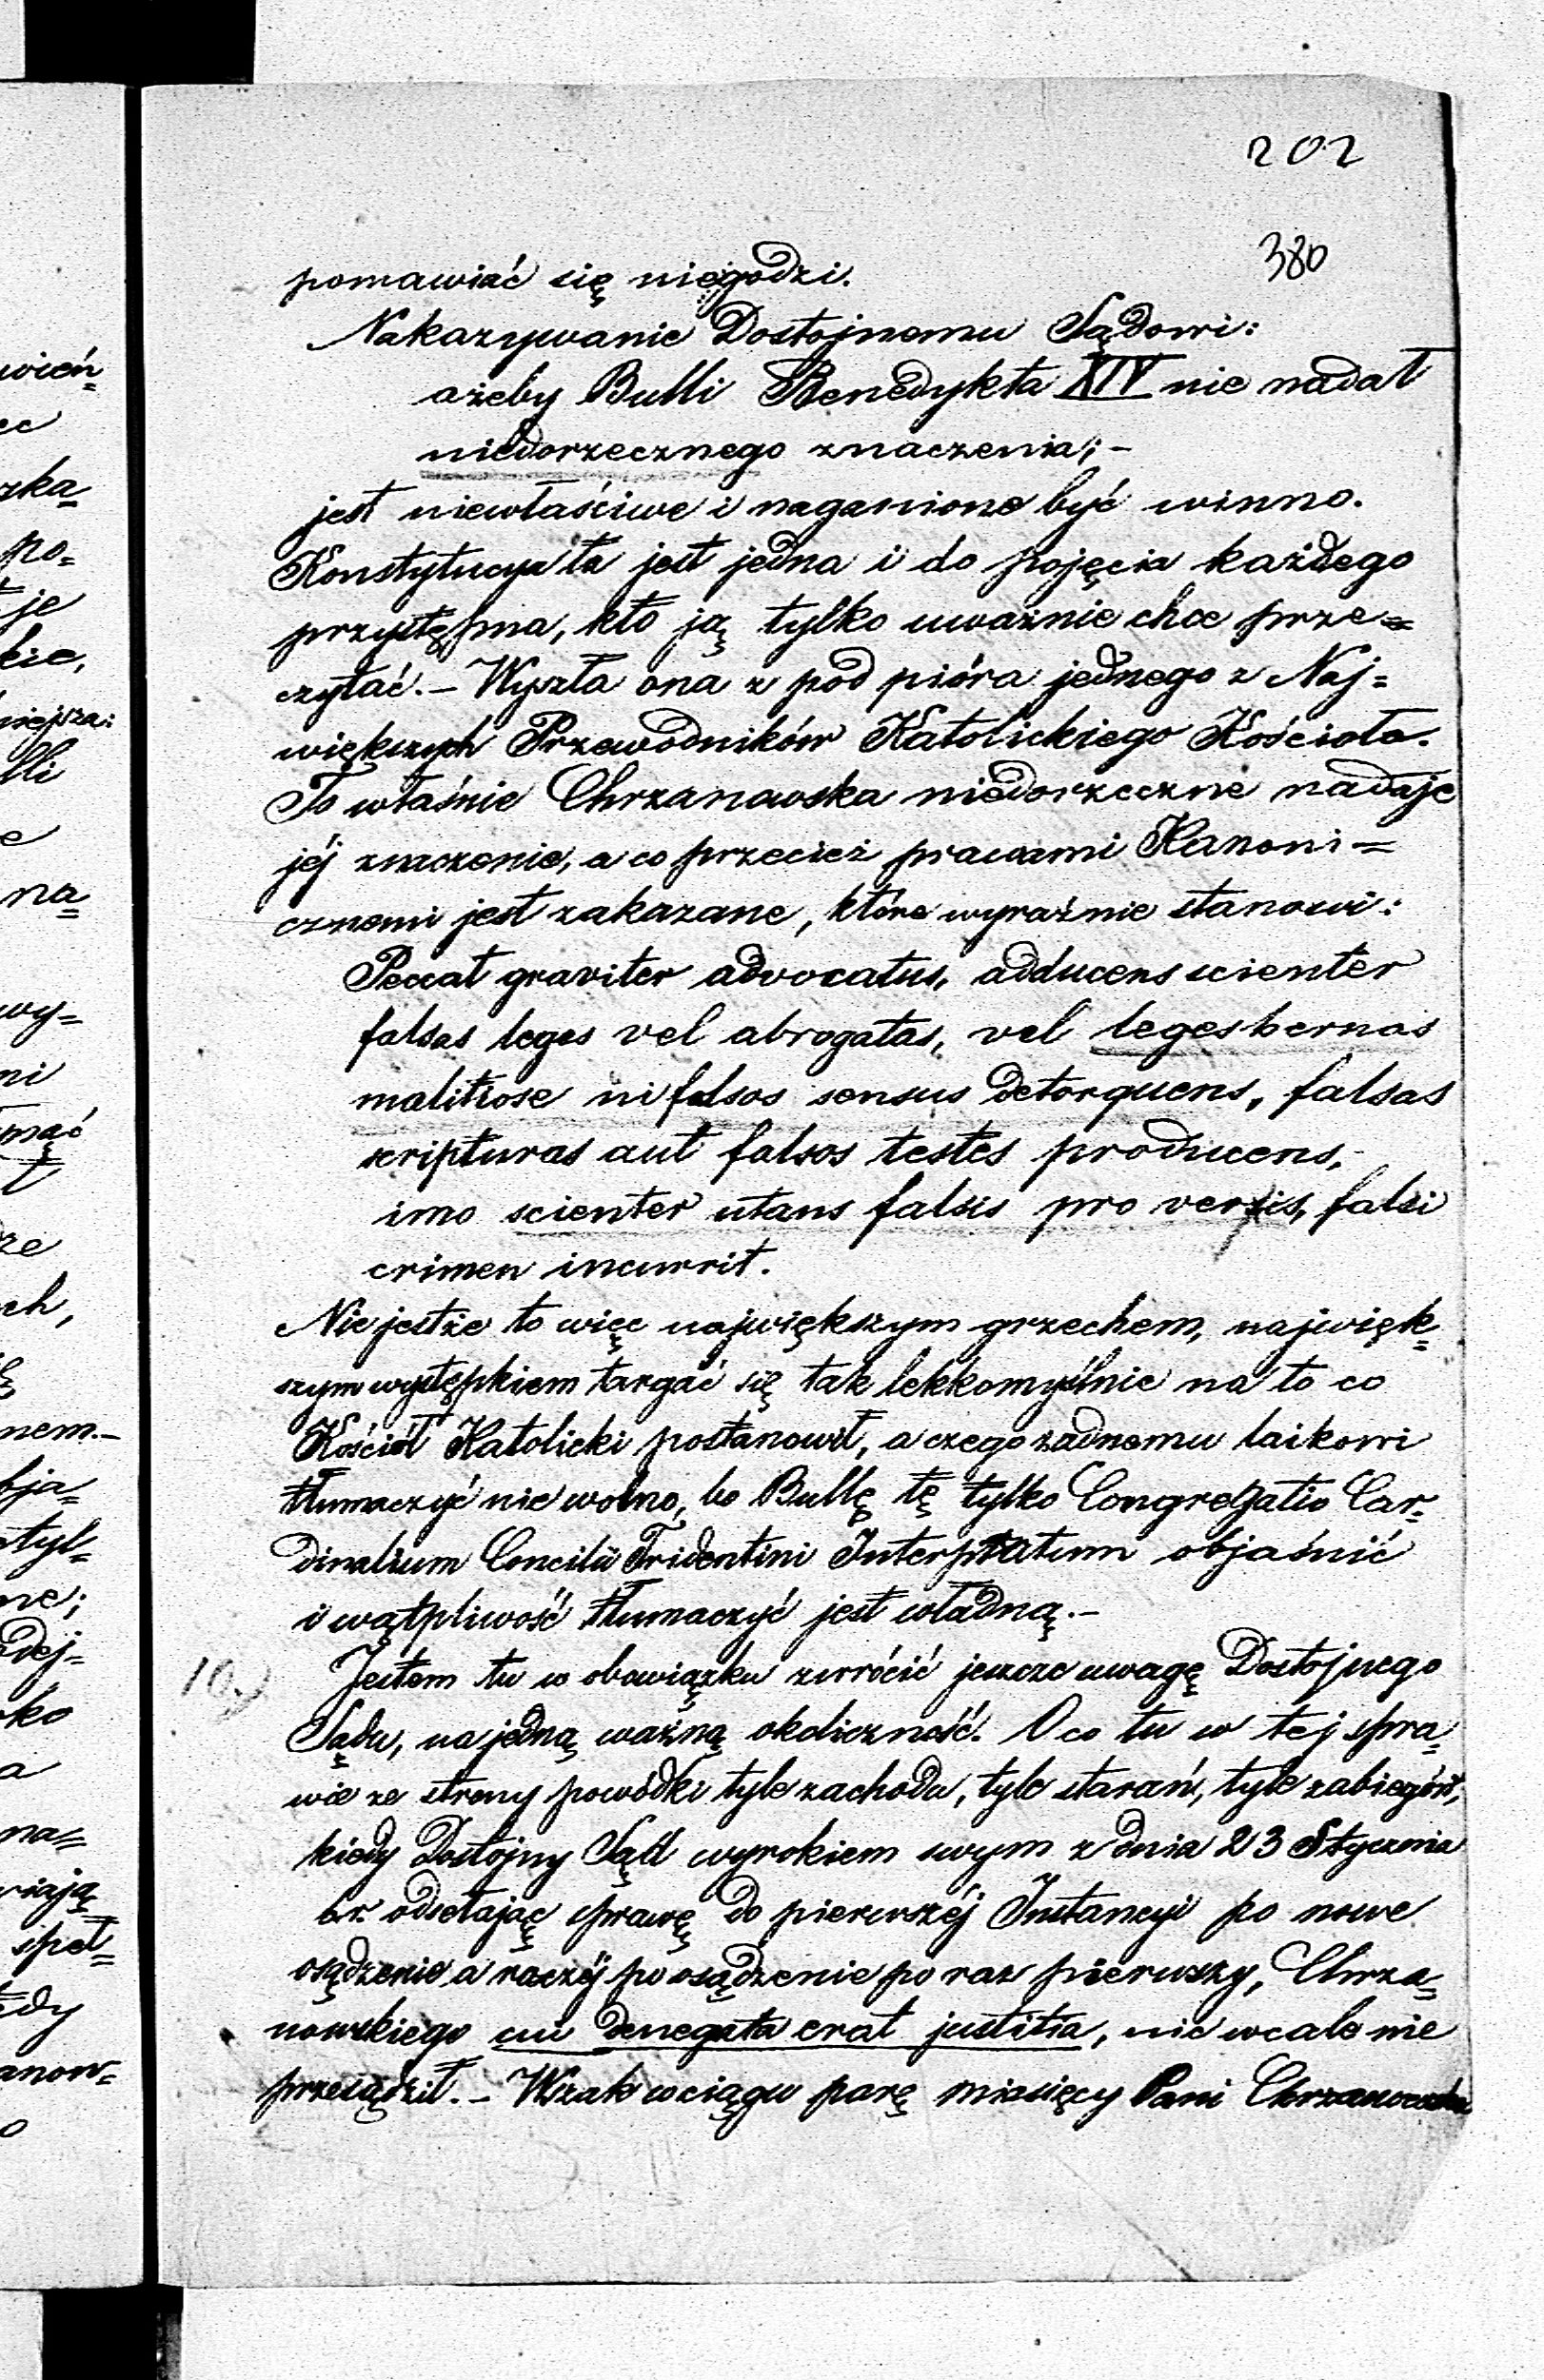 202
380
pomawiać się niegodzi.
Nakazywanie Dostojnemu Sądowi:
ażeby Bulli Benedykta XIV nie nadał
niedorzecznego znaczenia; -
jest niewłaściwe i naganione być winno.
Konstytucya ta jest jedna i do pojęcia każdego
przystępna, kto ją tylko uważnie chce prze=
czytać. - Wyszła ona z pod pióra jednego z Naj=
większych Przewodników Katolickiego Kościoła.
To właśnie Chrzanowska niedorzeczne nadaje
jéj znaczenie, a co przecież prawami Kanoni=
cznemi jest zakazane, które wyraźnie stanowi:
Peccat graviter advocatus, adducens scienter
falsas leges vel abrogatas, vel leges bernas
malitiose ni falsos sensus detorquens, falsas
scripturas aut falsos testes producens,
imo scienter utans falsis pro veris, falsi
crimen incurrit.
Nie jestże to więc największym grzechem, najwięk=
szym występkiem targać się tak lekkomyślnie na to co
Kościół Katolicki postanowił, a czego żadnemu laikowi
tłumaczyć nie wolno, bo Bullę tę tylko Congregatio Car=
dinalium Concilii Tridentini Interpratum objaśnić
i wątpliwość tłumaczyć jest władną. -
10.) Jestem tu w obowiązku zwrócić jeszcze uwagę Dostojnego
Sądu, na jedną ważną okoliczność. O co tu w tej spra=
wie ze strony powódki tyle zachodu, tyle starań, tyle zabiegów,
kiedy Dostojny Sąd wyrokiem swym z dnia 23 Stycznia
b.r. odsełając sprawę do pierwszéj Instancyi po nowe
osądzenie a raczéj po osądzenie po raz pierwszy, Chrza=
nowskiego cui denegata erat justitia, nic wcale nie
przesądził. - Wszak wciągu parę miesięcy Pani Chrzanowska
wień=
zka=
po=
je
kie,
niejsza:
lli
e
na=
wy=
ni
mać
ze
ch,
nem. -
bja=
tyl=
ne;
dej=
ko
a
na=
wiają
speł=
edy
anow=
o